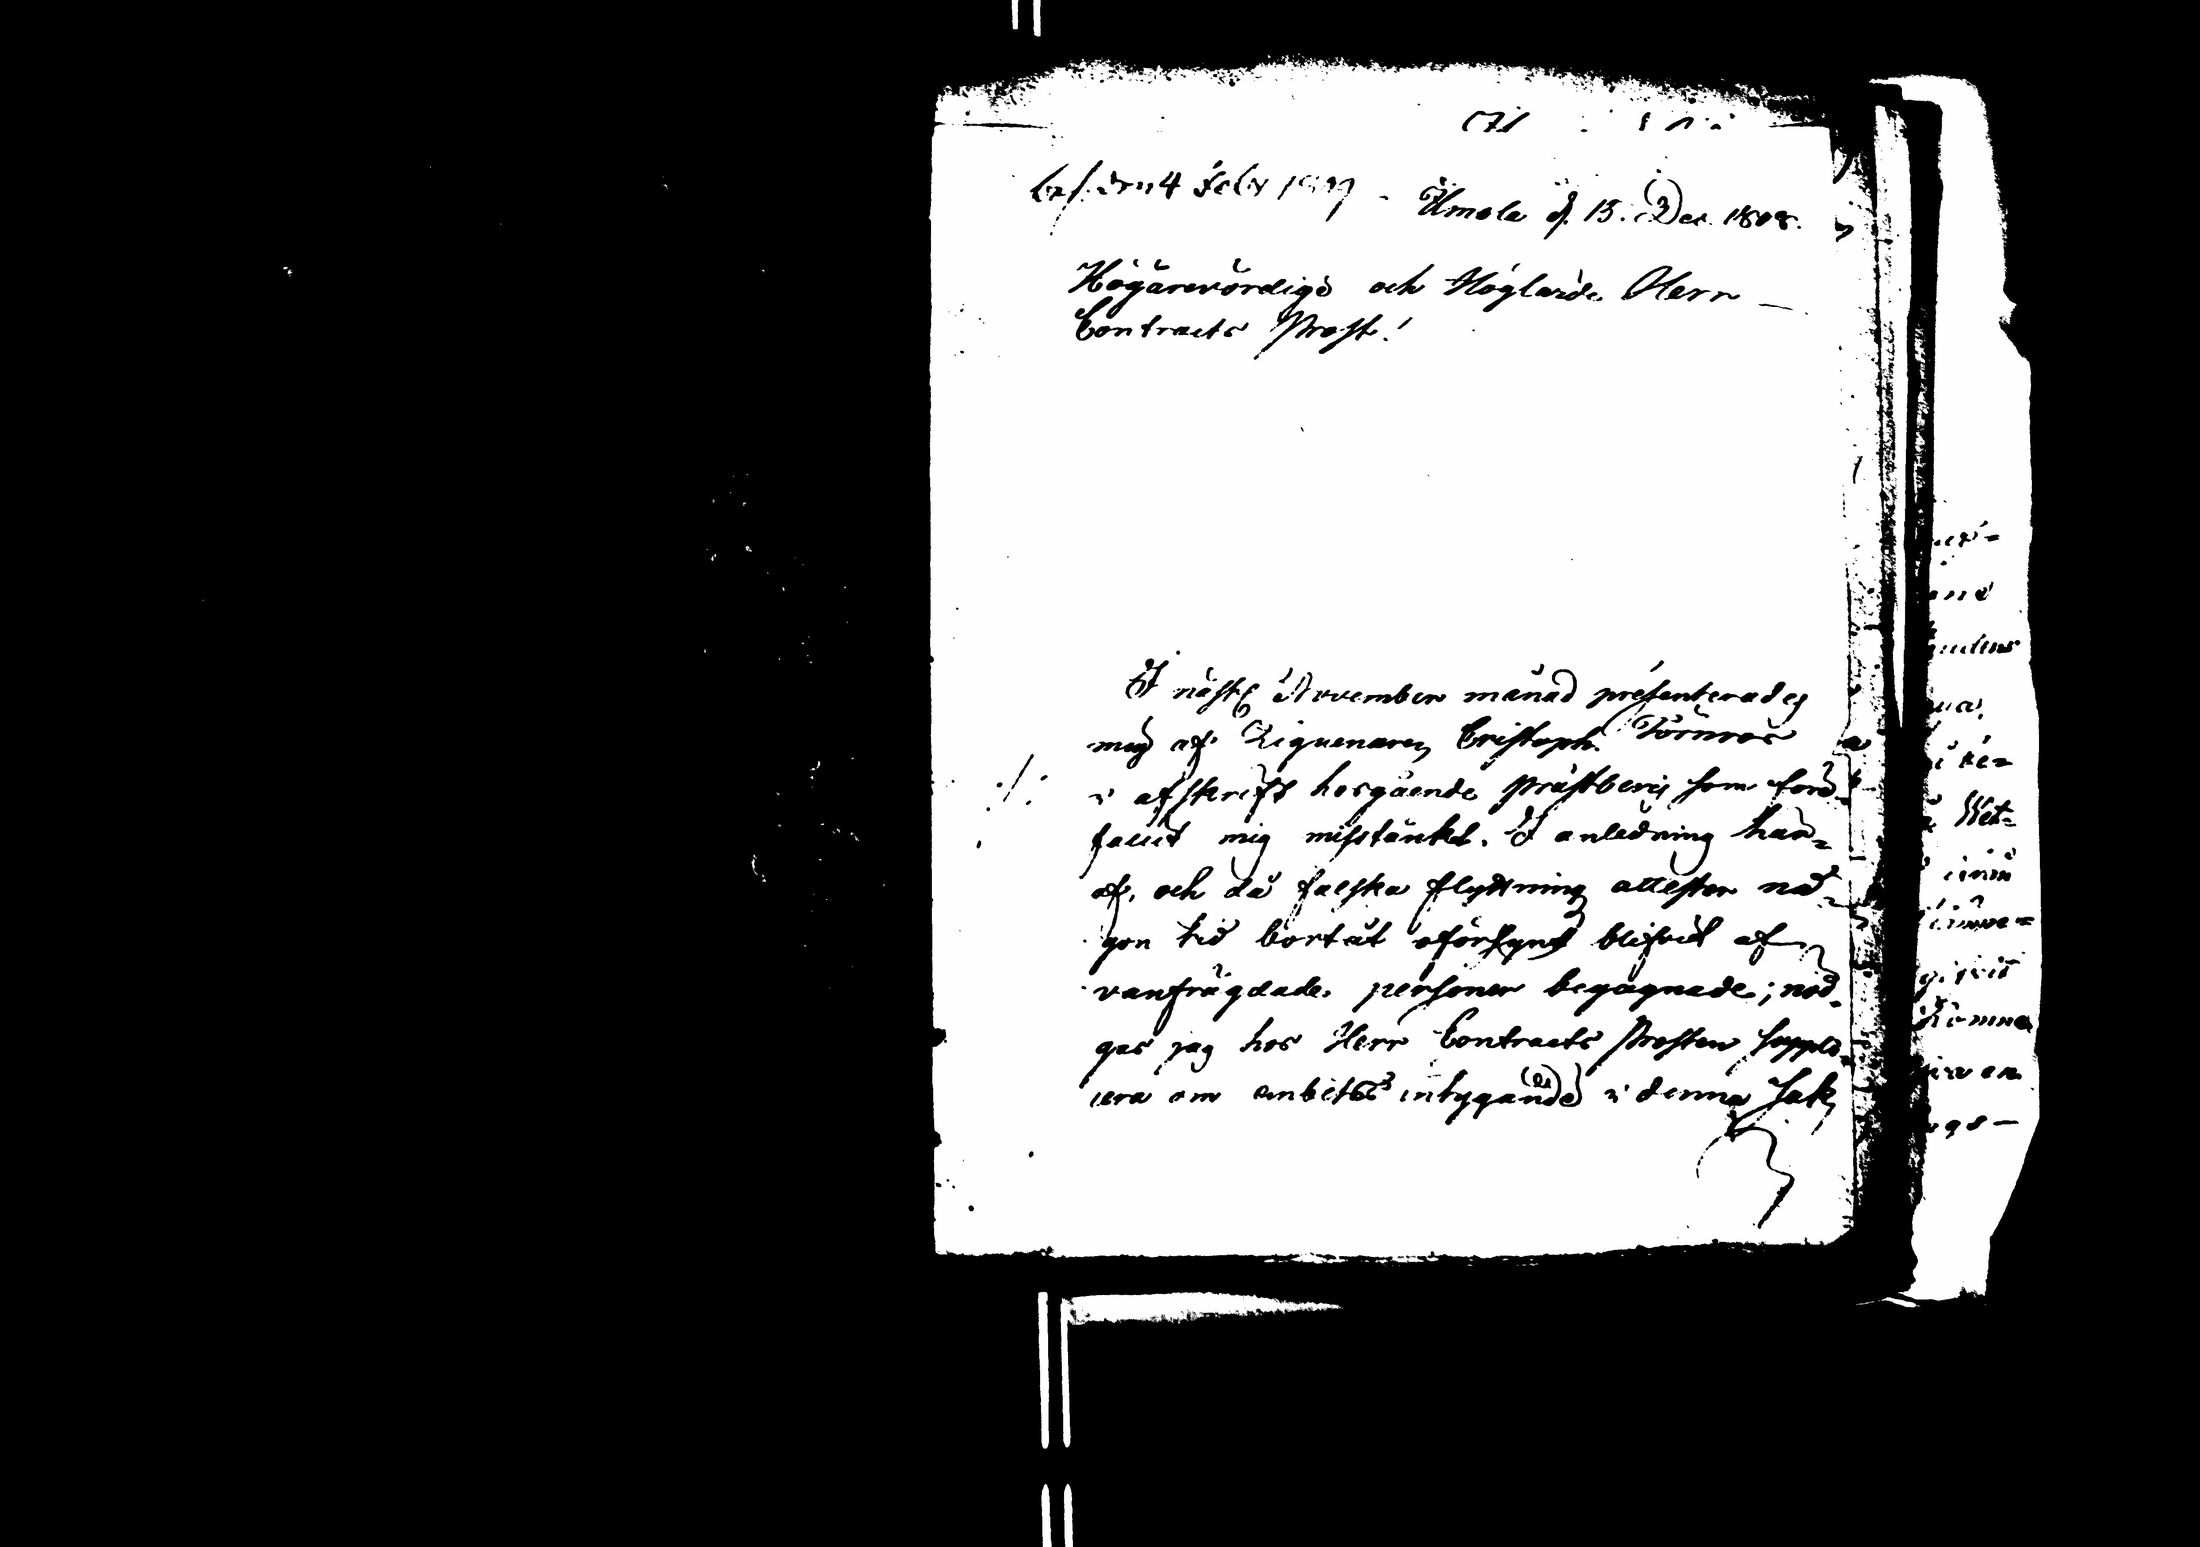 den 4 Febr 1809
Umola d. 13. Dec. 1808.
Högärevördige och Höglärde Herr
Contracts Prost!
I näst November månad presenterades
mig af Ziguenaren Cristoph Törnroos
./. i afskrift hosgående Prästbevis som före-
fallit mig misstänkt. I anledning här=
af, och då falska flyttning attester nå-
gon tid bortåt oförsynt blifvit af
vanfrägdade personer begagnade; nöd-
gas jag hos Herr Contracts Prosten supplic-
era om embets intygande i denna Sak,